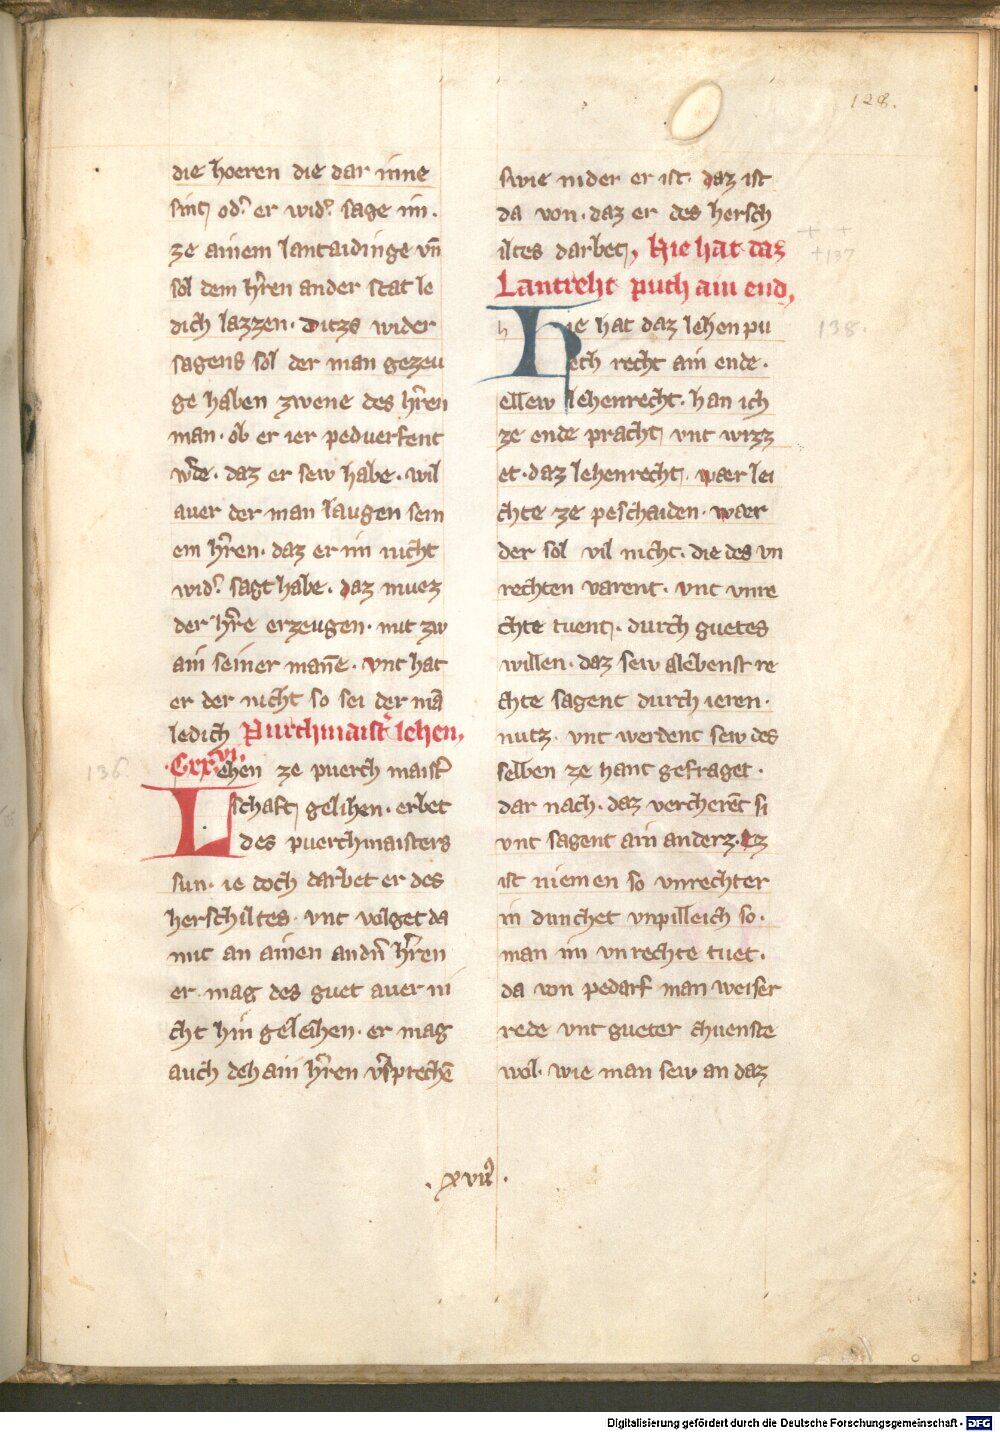 128.
die hoeren die dar inne
sint od͛ er wid͛ sage im.
ze ainem lantaidinge vn̄
sol dem hr̄en ander stat le
dich lazzen. Ditzs wider
sagens sol der man gezeu
ge haben zwene des hr̄en
man. ob er ier peduerfent
w͛de. daz er sew habe. wil
auer der man laugen sein
em hr̄en. daz er im nicht
wid͛ sagt habe. daz muez
der hr̄re erzeugen. mit zw
ain seiner man̄e. vnt hat
er der nicht so sei der mā
ledich Purchmaist͛ lehen,
.Cxxvi.
136.
Lehen ze puerch maist͛
schaft gelihen. erbet
des puerchmaisters
sun. ie doch darbet er des
herschiltes. vnt volget da
mit an ainen andn̄ hr̄ren
er. mag des guet auer ni
cht hin geleihen. er mag
auch dehain hr̄ren v͛sprechē
swie nider er ist. daz ist
da von. daz er des hersch
iltes darbet, Hie hat das
Lantreht puch ain end,
+ +
+137
138.
h Hie hat daz lehen pu
ech recht ain ende.
ellew lehenrecht. han ich
ze ende pracht vnt wizz
et. daz lehenrecht. waer lei
chte ze peschaiden. waer
der sol vil nicht. die des vn
rechten varent. vnt vnre
chte tuent. durch guetes
willen. daz sew alebenst re
chte sagent durch ieren.
nutz. vnt werdent sew des
selben ze hant gefraget.
dar nach. daz vercherēt si
vnt sagent ain anderz. Ez
ist niemen so vnrechter
in dunchet vnpilleich so.
man im vnrechte tuet.
da von pedarf man weiser
rede vnt gueter chuenste
wol. wie man sew an daz
. xviij .
Digitalisierung gefördert durch die Deutsche Forschungsgemeinschaft - DFG